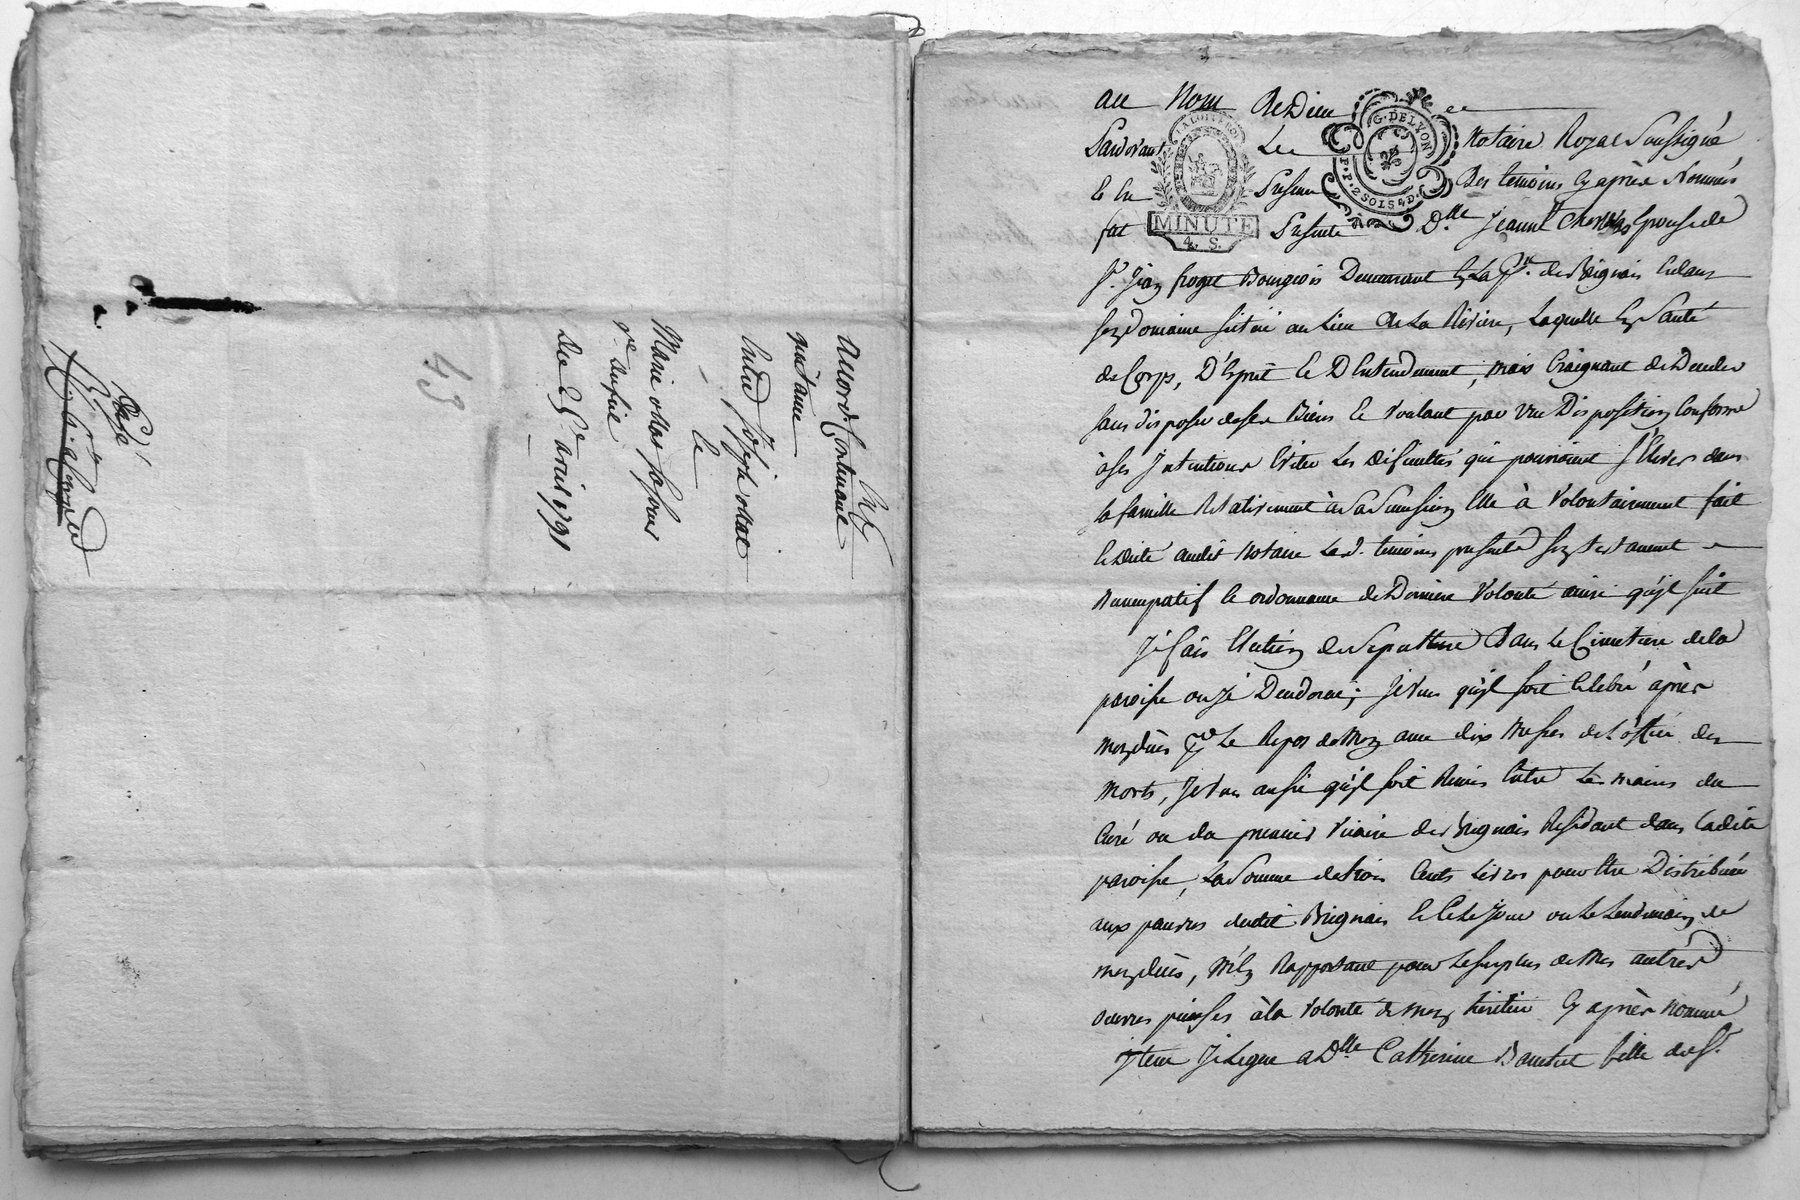 accord Contenant
quittance
Entre Joseph
&
Marie
du 5e avril 1791
43
Exp
au Nom de Dieu
Pardevant Le Notaire Royal Soussigné
& En Présence Des temoins Cy après Nommés
fut Présente D.lle Jeanne Epouse de
Sr. Jean Bourgeois Demeurant En La Psse. de Brignais Et dans
son Domaine situé au Lieu de La Riviere, Laquelle En Santé
de Corps, D'Esprit et D'Entendement, mais Craignant de Deceder
sans disposer de ses Biens et voulant par une Disposition Conforme
à ses Intentions Eviter Les dificultés qui pourroient s'Elever dans
sa famille Relativement à sa Succession Elle à Volontairement fait
et dicté audit Notaire Lesd. temoins presents son testament
Nuncupatif et ordonnance de Derniere Volonté ainsi qu'il suit
Je fais Election de Sepulture Dans Le Cimetiere de la
paroisse ou je Decederai; je veux qu'il soit Celebré après
mon deces pr Le Repos de Mon ame dix Messes de L'office des
Morts, Je veux aussi qu'il soit Remis Entre Les mains du
Curé ou du premier Vicaire de Brignais Résidant dans Ladite
paroisse, La Somme de trois Cents Livres pour Etre Distribuée
aux pauvres dudit Brignais et Ce Le Jour ou Le Lendemain de
mon deces, M'En Rapportant pour Le surplus de Mes autres
oeuvres pieuses à la volonté de mon heritier Cy après nommé
Item Je Legue a Dlle Catherine fille de Sr.
LA LOI LE ROI
MINUTE
4. S.
G. DE LYON
P.P. 2 SOLS 4 D.